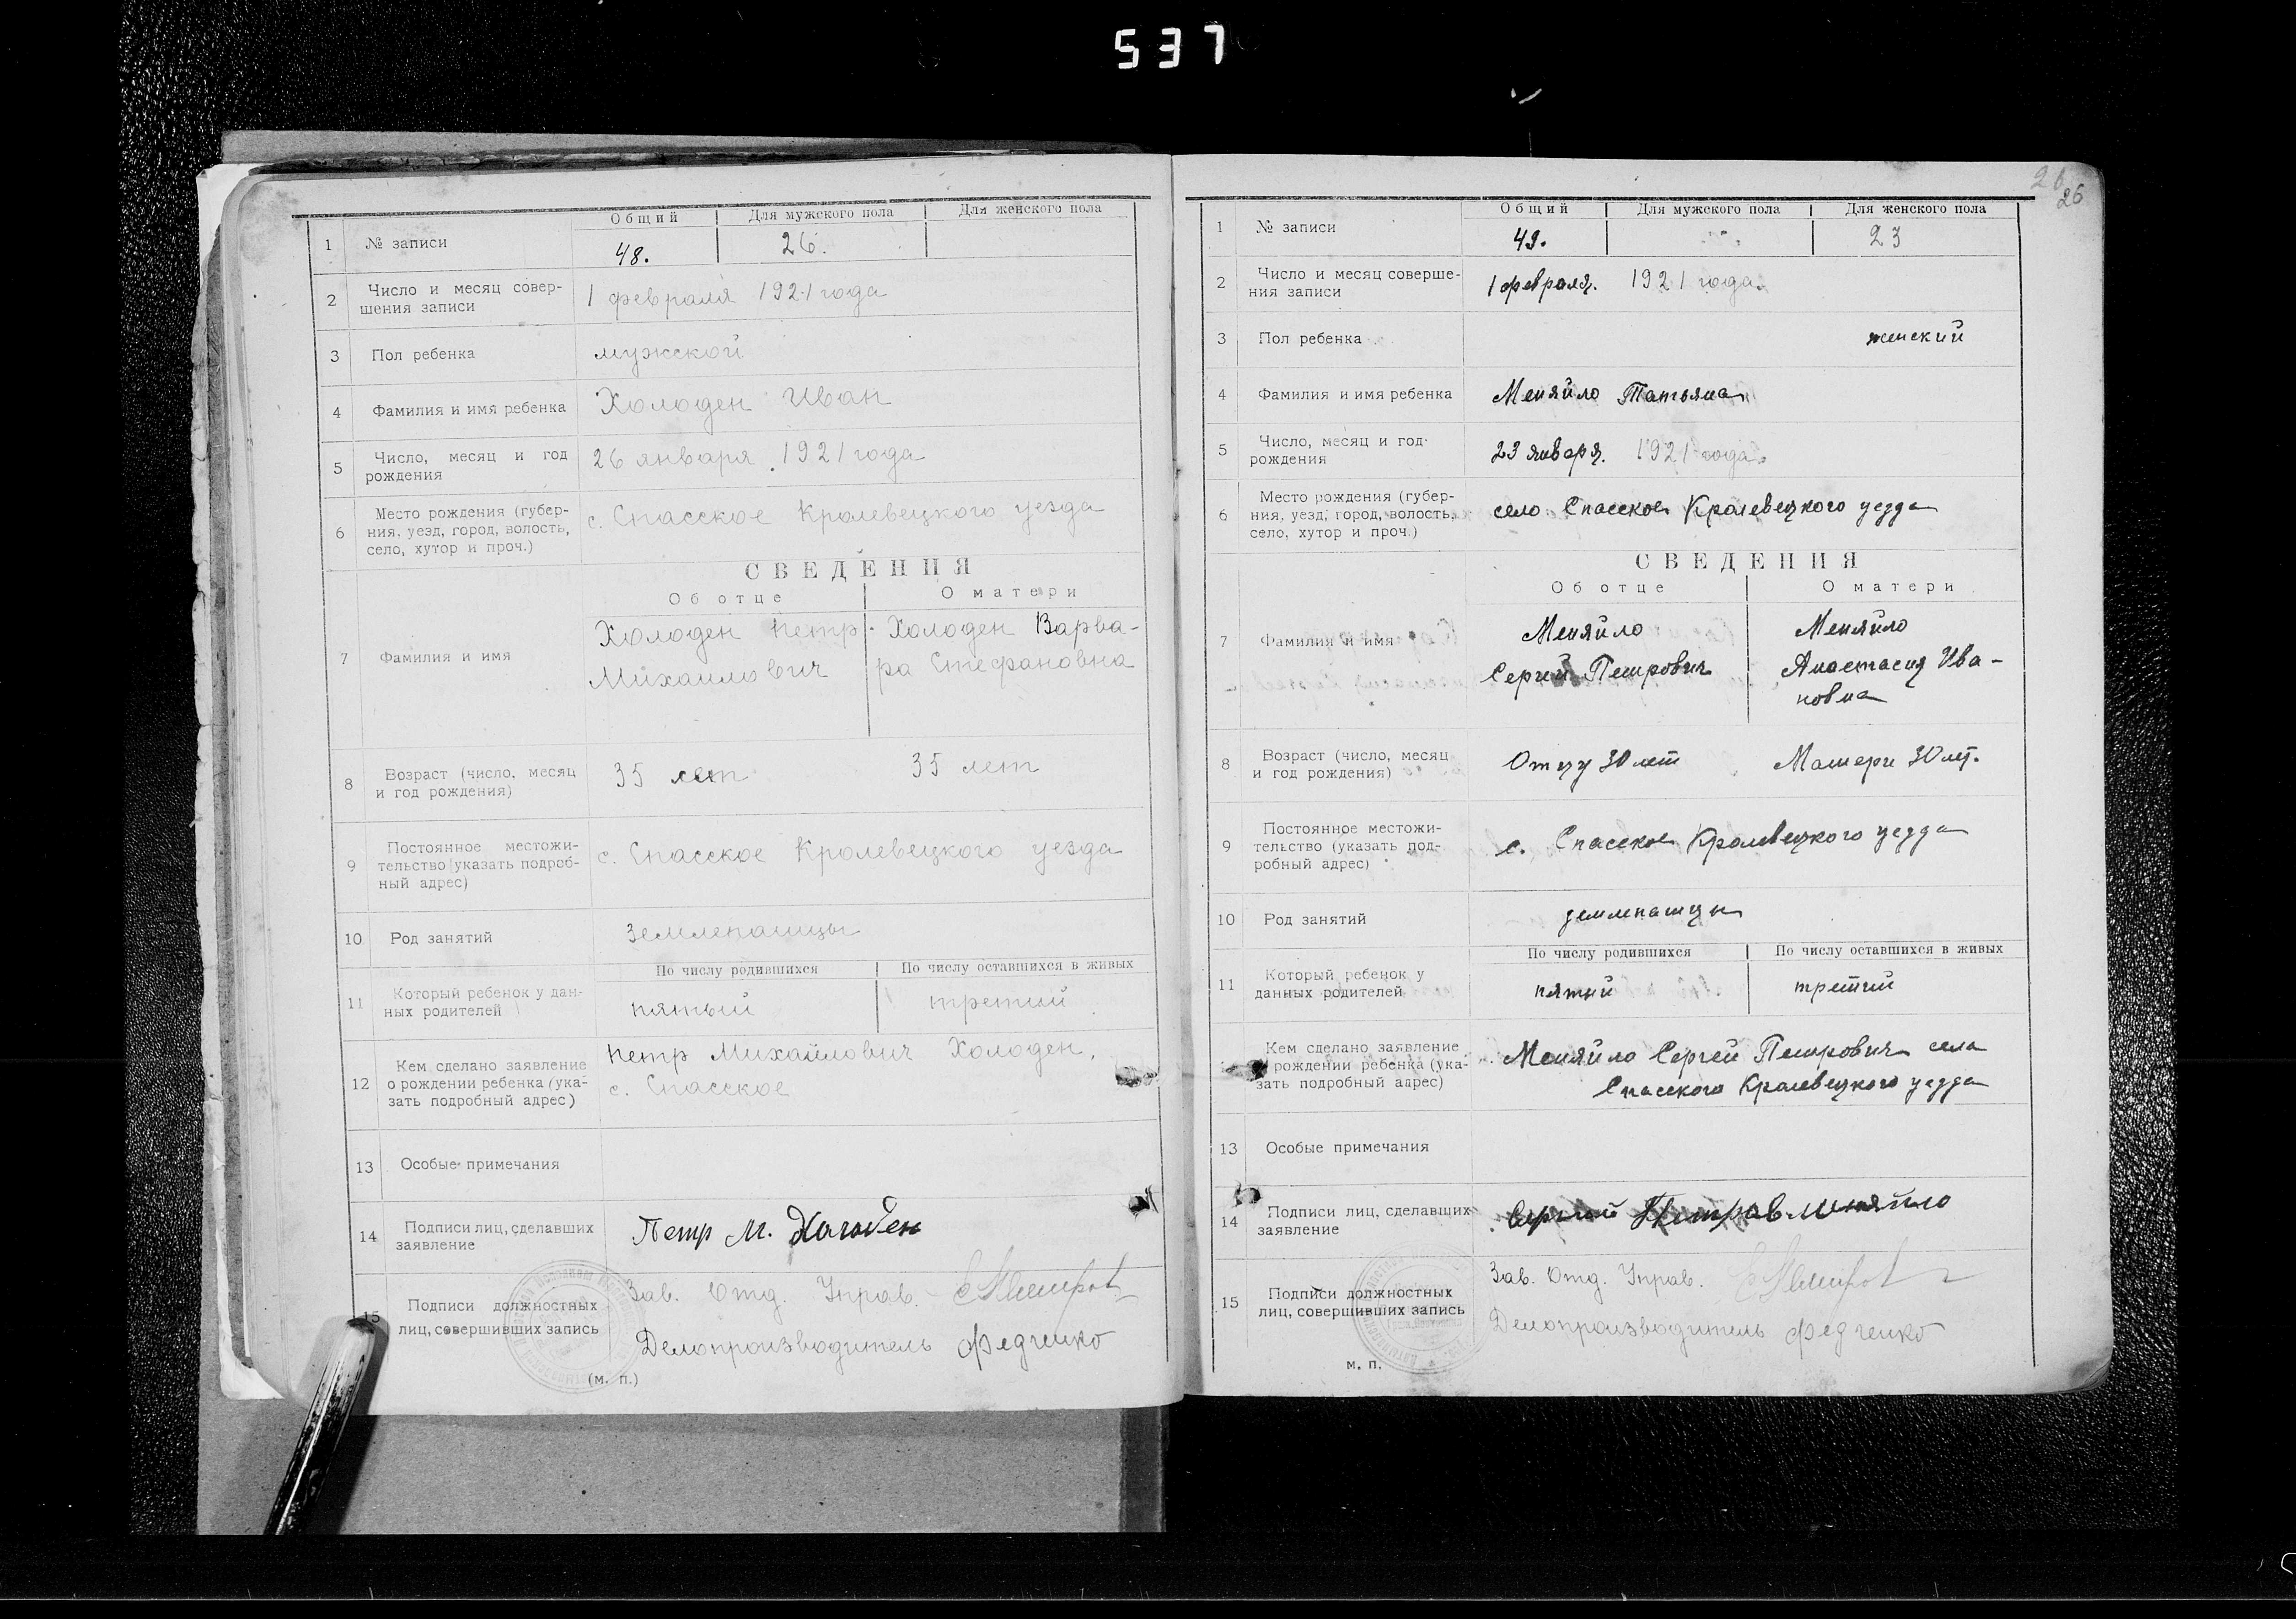 537
Общий Для мужского пола Для женского пола
1 № записи 48. 26.
2 Число и месяц совер-
шения записи 1 февраля 1921 года
3 Пол ребенка мужской
4 Фамилия и имя ребенка Холоден Иван
5 Число, месяц и год
рождения 26 января 1921 года
6 Место рождения (губер-
ния, уезд, город, волость,
село, хутор и проч.) с. Спасское Кролевецкого уезда
СВЕДЕНИЯ
Об отце О матери
7 Фамилия и имя Холоден Петр Холоден Варва-
Михайлович ра Стефановна
8 Возраст (число, месяц
и год рождения) 35 лет 35 лет
9 Постоянное местожи-
тельство (указать подроб-
ный адрес) с. Спасское Кролевецкого уезда
10 Род занятий Землепашцы
По числу родившихся По числу оставшихся в живых
11 Который ребенок у дан-
ных родителей пятый третий
12 Кем сделано заявление
о рождении ребенка (ука-
зать подробный адрес) Петр Михайлович Холоден,
с. Спасское
13 Особые примечания
14 Подписи лиц, сделавших
заявление Петр М. Холоден
15 Подписи должностных
лиц, совершивших запись Зав. Отд. Управ.
Делопроизводитель Федченко
(м. п.)
26
26
Общий Для мужского пола Для женского пола
1 № записи 49. 23
2 Число и месяц соверше-
ния записи 1 февраля. 1921 года.
3 Пол ребенка женский
4 Фамилия и имя ребенка Меняйло Татьяна
5 Число, месяц и год
рождения 23 января. 1921 года.
6 Место рождения (губер-
ния, уезд, город, волость,
село, хутор и проч.) село Спасское Кролевецкого уезда
СВЕДЕНИЯ
Об отце О матери
7 Фамилия и имя Меняйло Меняйло
Сергей Петрович Анастасия Ива-
новна
8 Возраст (число, месяц
и год рождения) Отцу 30 лет Матери 30 лет.
9 Постоянное местожи-
тельство (указать под-
робный адрес) с. Спасское Кролевецкого уезда
10 Род занятий землепашцы
По числу родившихся По числу оставшихся в живых
11 Который ребенок у
данных родителей пятый третий
Кем сделано заявление
рождении ребенка (ука-
зать подробный адрес) Меняйло Сергей Петрович села
Спасского Кролевецкого уезда
13 Особые примечания
14 Подписи лиц, сделавших
заявление Сергей Меняйло
15 Подписи должностных
лиц, совершивших запись Зав. Отд. Управ.
Делопроизводитель Федченко
м. п.